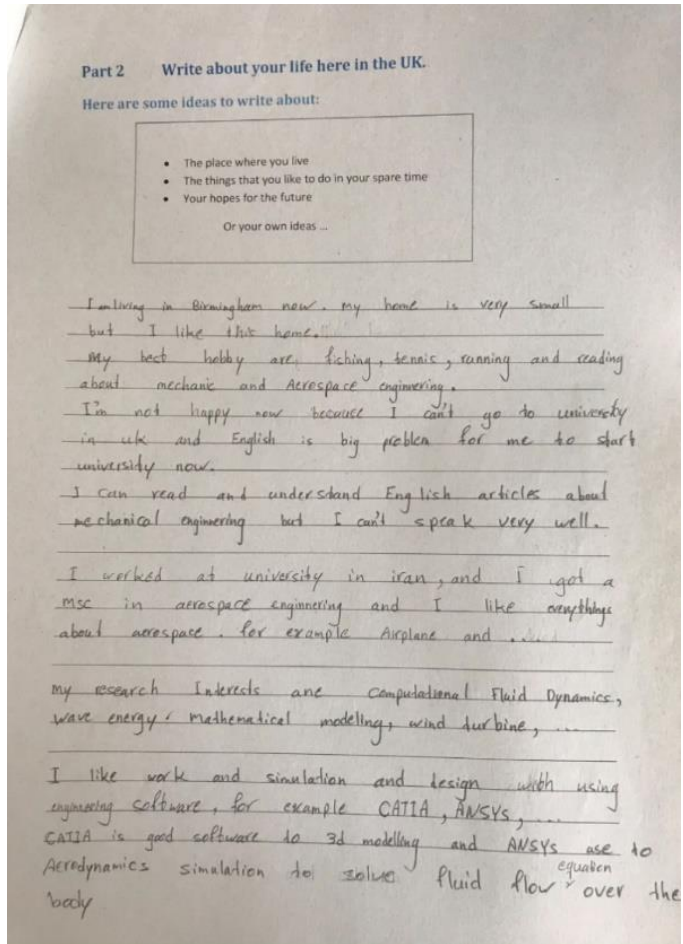 Part 2 Write about your life here in the UK.
Here are some ideas to write about:
• The place where you live
• The things that you like to do in your spare time
• Your hopes for the future
Or your own ideas ...
I am living in Birmingham now. my home is very small
but I like this home.
My best hobby are, fiching, tennis, running and reading
about mechanic and Aerospace enginnering.
I'm not happy now because I can't go to university
in uk and English is big problem for me to start
university now.
I can read and understand English articles about
mechanical enginnering but I can't speak very well.
I worked at university in iran, and I got a
msc in aerospace enginnering and I like everythings
about aerospace. for example Airplane and .....
my research Interests are Computational Fluid Dynamics,
wave energy, mathematical modeling, wind turbine, ....
I like work and simulation and design with using
enginnering software, for example CATIA, ANSYS, ....
CATIA is good software to 3d modelling and ANSYS use to
Aerodynamics simulation to solve fluid flow equation over the
body